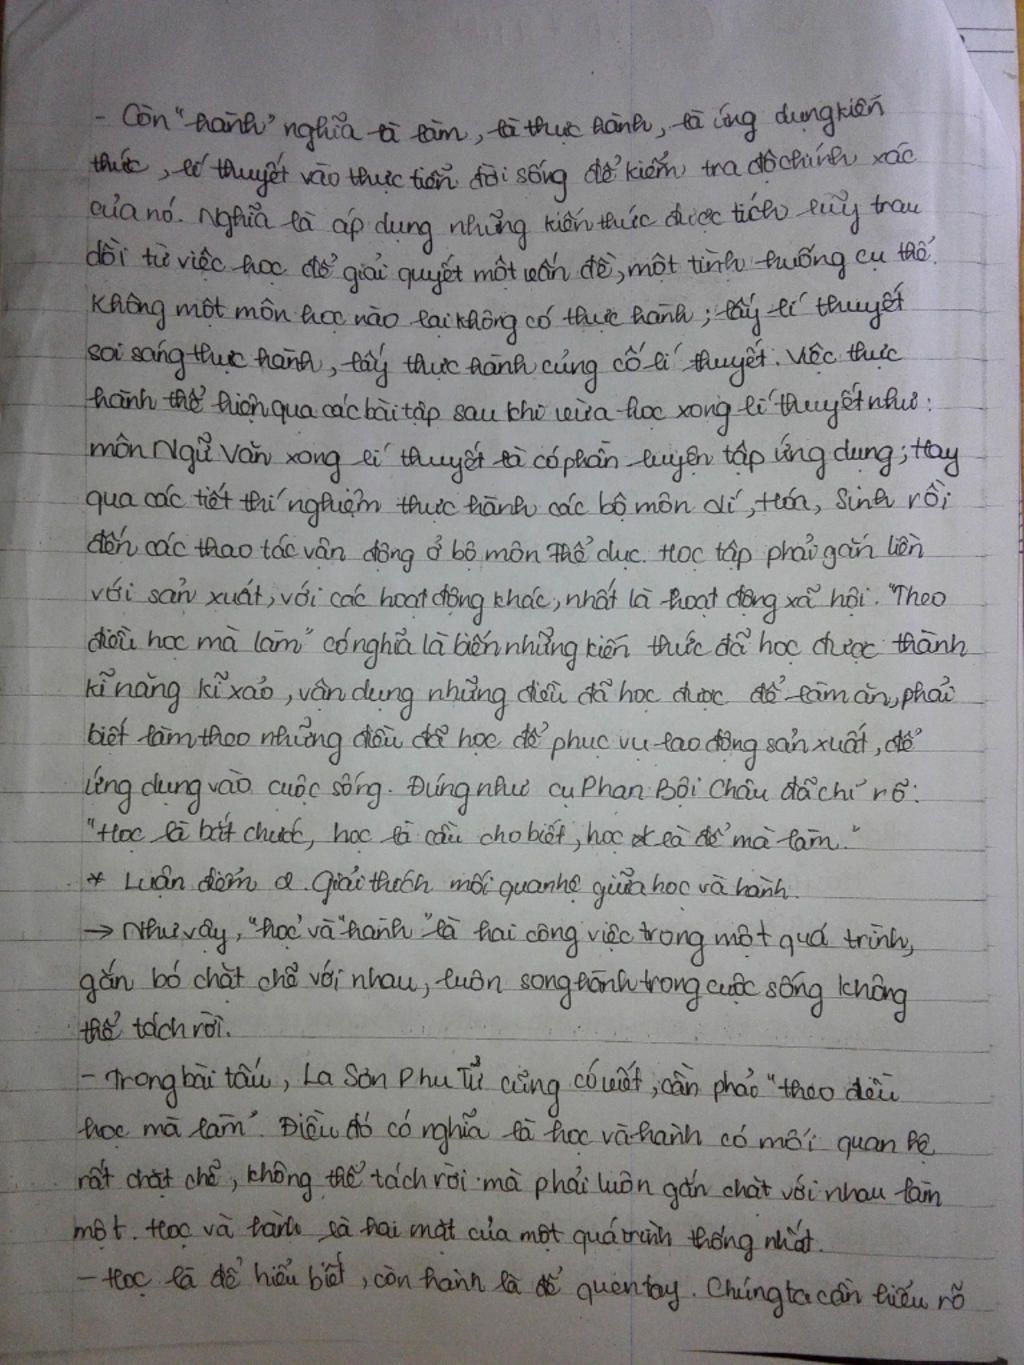 - Còn "hành" nghĩa là làm, là thực hành, là ứng dụng kiến
thức, lí thuyết vào thực tiễn đời sống để kiểm tra độ chính xác
của nó. Nghĩa là áp dụng những kiến thức được tích luỹ trau
dồi từ việc học để giải quyết một vấn đề, một tình huống cụ thể.
Không một môn học nào lại không có thực hành; lấy lí thuyết
soi sáng thực hành, lấy thực hành củng cố lí thuyết. Việc thực
hành thể hiện qua các bài tập sau khi vừa học xong lí thuyết như:
môn Ngữ Văn xong lí thuyết là có phần luyện tập ứng dụng; Hay
qua các tiết thí nghiệm thực hành các bộ môn Lí, Hóa, Sinh rồi
đến các thao tác vận động ở bộ môn Thể dục. Học tập phải gắn liền
với sản xuất, với các hoạt động khác, nhất là hoạt động xã hội. "Theo
điều học mà làm" có nghĩa là biến những kiến thức đã học được thành
kĩ năng kĩ xảo, vận dụng những điều đã học được để làm ăn, phải
biết làm theo những điều đã học để phục vụ lao động sản xuất, để
ứng dụng vào cuộc sống. Đúng như cụ Phan Bội Châu đã chỉ rõ:
"Học là bắt chước, học là cầu cho biết, học là để mà làm."
* Luận điểm 2. Giải thích mối quan hệ giữa học và hành.
→ Như vậy, "học" và "hành" là hai công việc trong một quá trình,
gắn bó chặt chẽ với nhau, luôn song hành trong cuộc sống không
thể tách rời.
- Trong bài tấu, La Sơn Phu Tử cũng có viết, cần phải "theo điều
học mà làm". Điều đó có nghĩa là học và hành có mối quan hệ
rất chặt chẽ, không thể tách rời mà phải luôn gắn chặt với nhau làm
một. Học và hành là hai mặt của một quá trình thống nhất.
- Học là để hiểu biết, còn hành là để quen tay. Chúng ta cần hiểu rõ